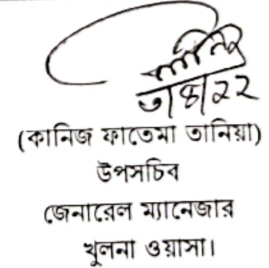 ৩/৪/২২
(কানিজ ফাতেমা তানিয়া)
উপসচিব
জেনারেল ম্যানেজার
খুলনা ওয়াসা।